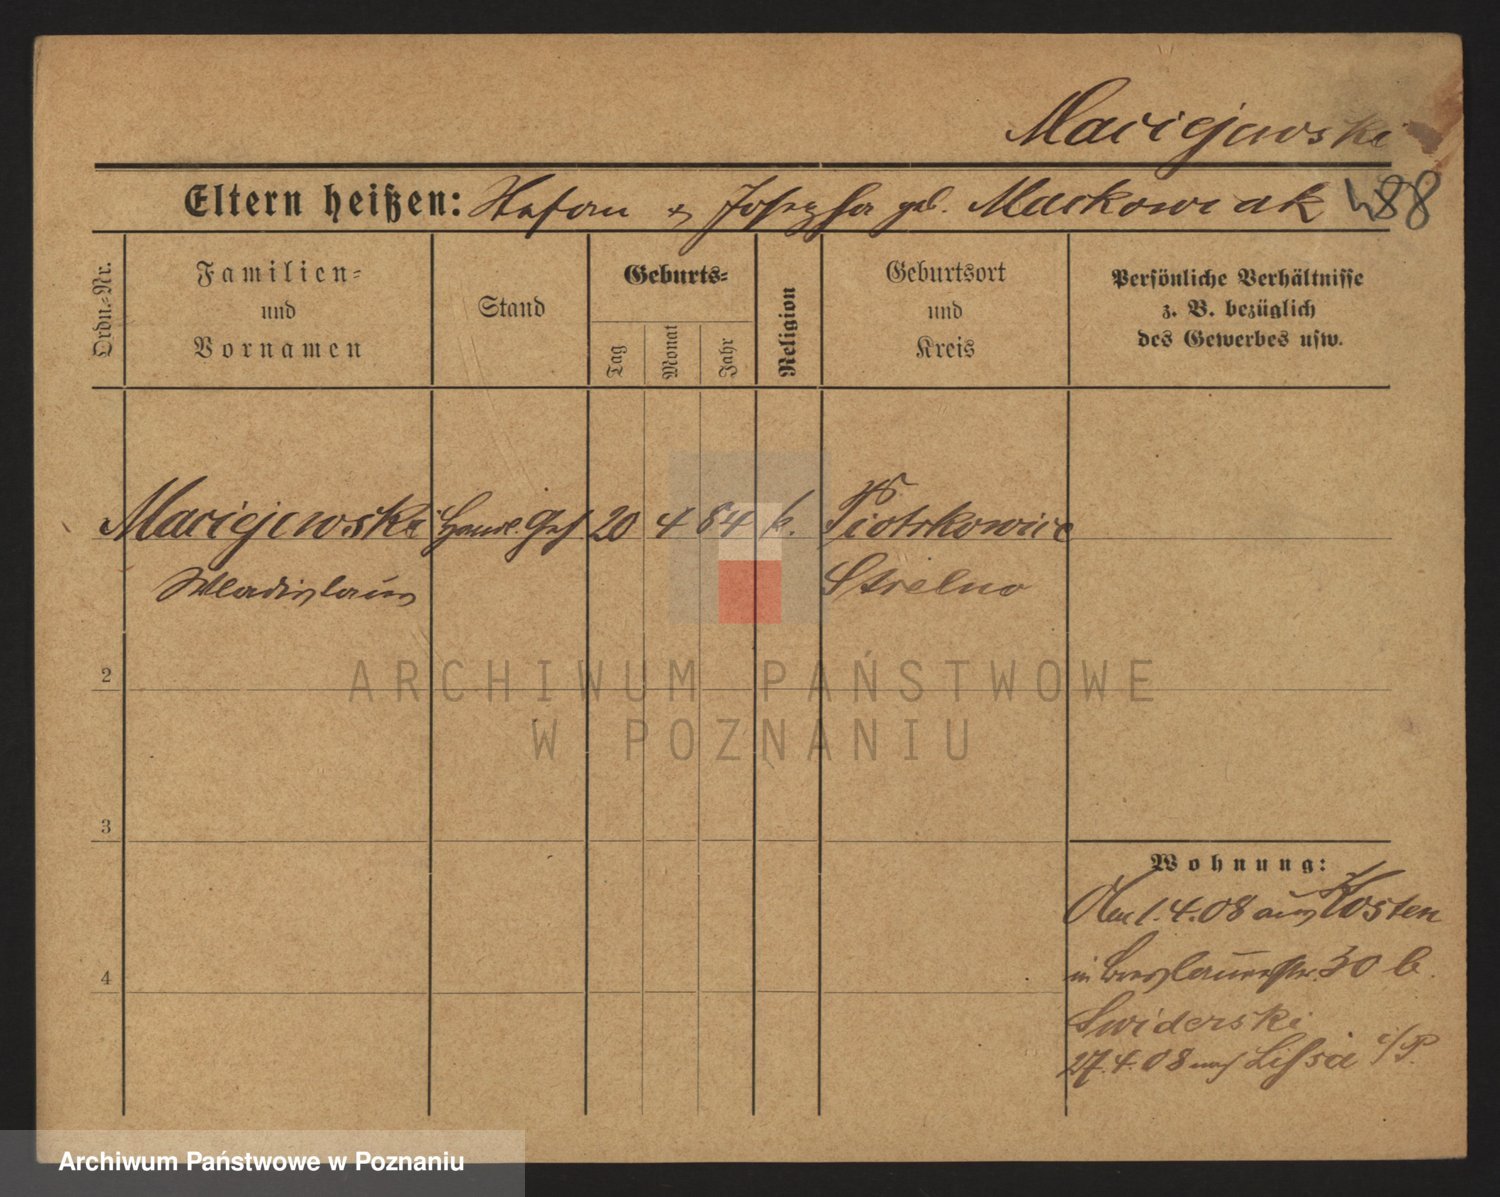 Maciejewski
Eltern heißen: Stefan & Josepha geb. Maćkowiak 488
Ordn.-Nr.
Familien- und Vornamen
Stand
Geburts-
Tag
Monat
Jahr
Religion
Geburtsort und Kreis
Persönliche Verhältnisse
z. B. bezüglich
des Gewerbes usw.
Maciejewski Handl. Geh 20 4 84 k. Piotrkowice
Wladislaus Strelno
2
3
4
Wohnung:
Am 1.4.08 aus Kosten
in Breslauerstr. 30 b.
Swiderski
27.4.08 nach Lissa i/P.
ARCHIWUM PAŃSTWOWE
W POZNANIU
Archiwum Państwowe w Poznaniu